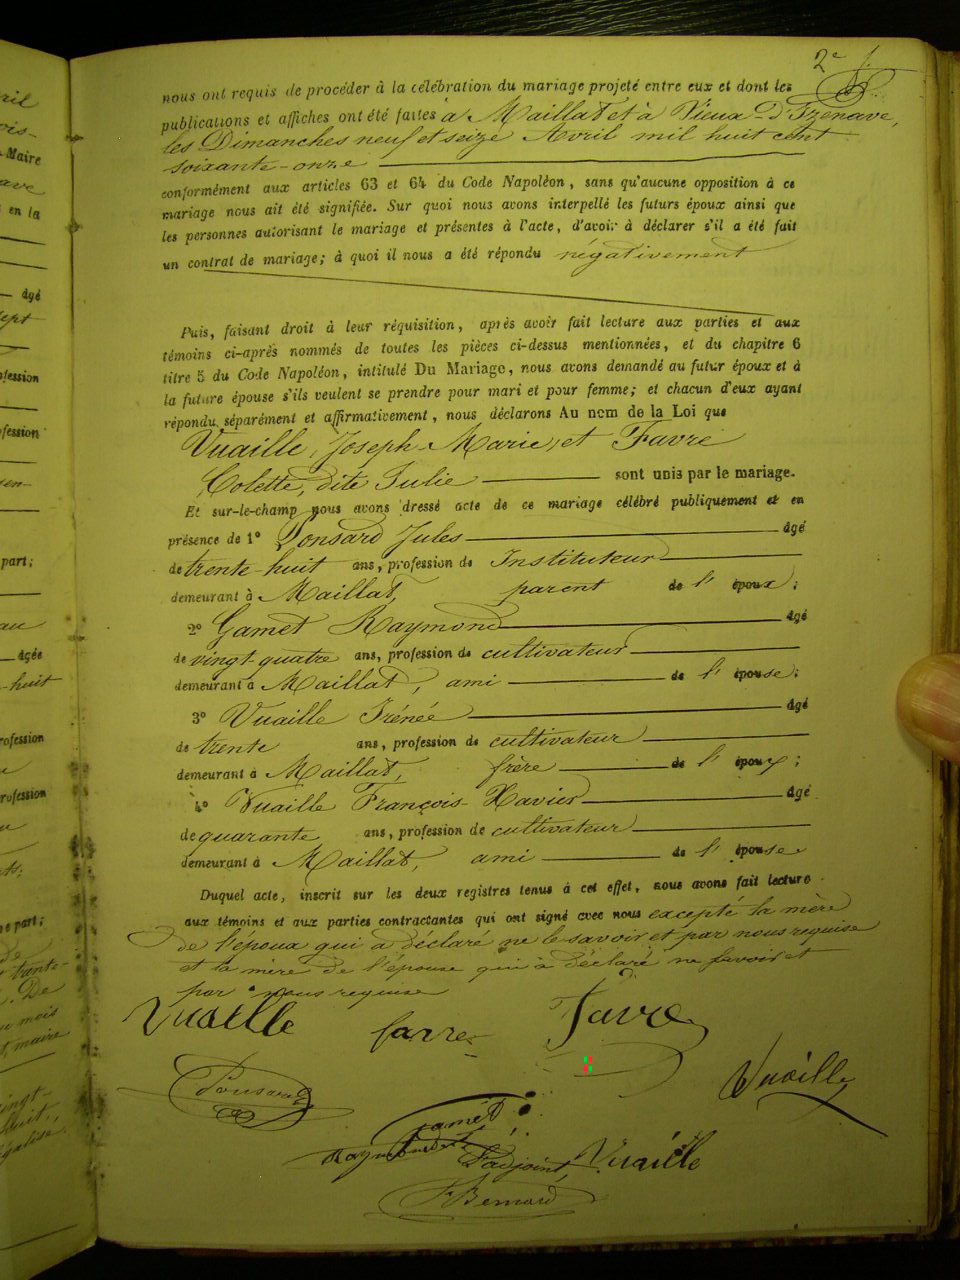 2e f.
nous ont requis de procéder à la célébration du mariage projeté entre eux et dont les
publications et affiches ont été faites à Maillat et à Vieux-d'Izenave,
les Dimanches neuf et seize Avril mil huit cent
soixante-onze
conformément aux articles 63 et 64 du Code Napoléon, sans qu'aucune opposition à ce
mariage nous ait été signifiée. Sur quoi nous avons interpellé les futurs époux ainsi que
les personnes autorisant le mariage et présentes à l'acte, d'avoir à déclarer s'il a été fait
un contrat de mariage; à quoi il nous a été répondu négativement
Puis, faisant droit à leur réquisition, après avoir fait lecture aux parties et aux
témoins ci-après nommés de toutes les pièces ci-dessus mentionnées, et du chapitre 6
titre 5 du Code Napoléon, intitulé Du Mariage, nous avons demandé au futur époux et à
la future épouse s'ils veulent se prendre pour mari et pour femme; et chacun d'eux ayant
répondu séparément et affirmativement, nous déclarons Au nom de la Loi que
Vuaille, Joseph-Marie, et Favre
Colette, dite Julie sont unis par le mariage.
Et sur-le-champ nous avons dressé acte de ce mariage célébré publiquement et en
présence de 1° Ponsard Jules âgé
de trente-huit ans, profession de Instituteur
demeurant à Maillat, parent de l'époux;
2° Gamet Raymond âgé
de vingt quatre ans, profession de cultivateur
demeurant à Maillat, ami de l'épouse;
3° Vuaille Irénée âgé
de trente ans, profession de cultivateur
demeurant à Maillat, frère de l'époux;
4° Vuaille François-Xavier âgé
de quarante ans, profession de cultivateur
demeurant à Maillat, ami de l'épouse
Duquel acte, inscrit sur les deux registres tenus à cet effet, nous avons fait lecture
aux témoins et aux parties contractantes qui ont signé avec nous excepté la mère
de l'époux qui a déclaré ne le savoir et par nous requise
et la mère de l'épouse qui a déclaré ne savoir et
par nous requise
Vuaille favre Favre
Ponsard Vuaille
Gamet
Raymond L'adjoint, Vuaille
Bernard